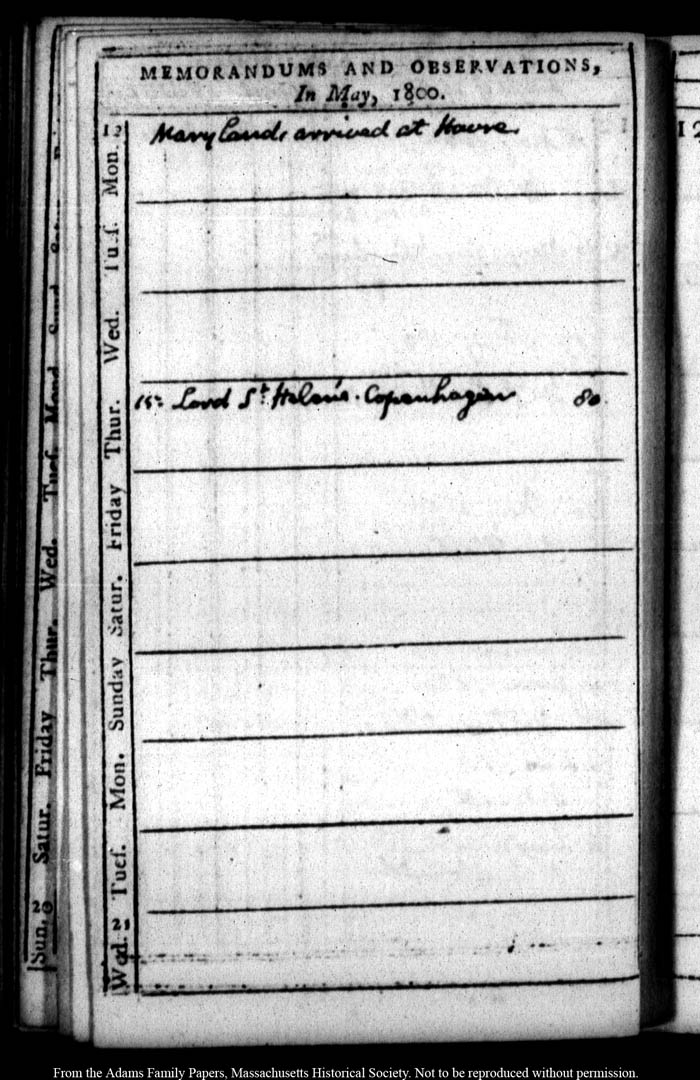 MEMORANDUMS AND OBSERVATIONS,
In May, 1800.
12
Mon.
Maryland, arrived at Havre.
Tuef.
Wed.
Thur.
15: Lord St. Helens. Copenhagen 80.
Friday
Satur.
Sunday
Mon.
Tuef.
21
Wed.
Mond
Tuef.
Wed.
Thur.
Friday
Satur.
20
Sun.
12
From the Adams Family Papers, Massachusetts Historical Society. Not to be reproduced without permission.